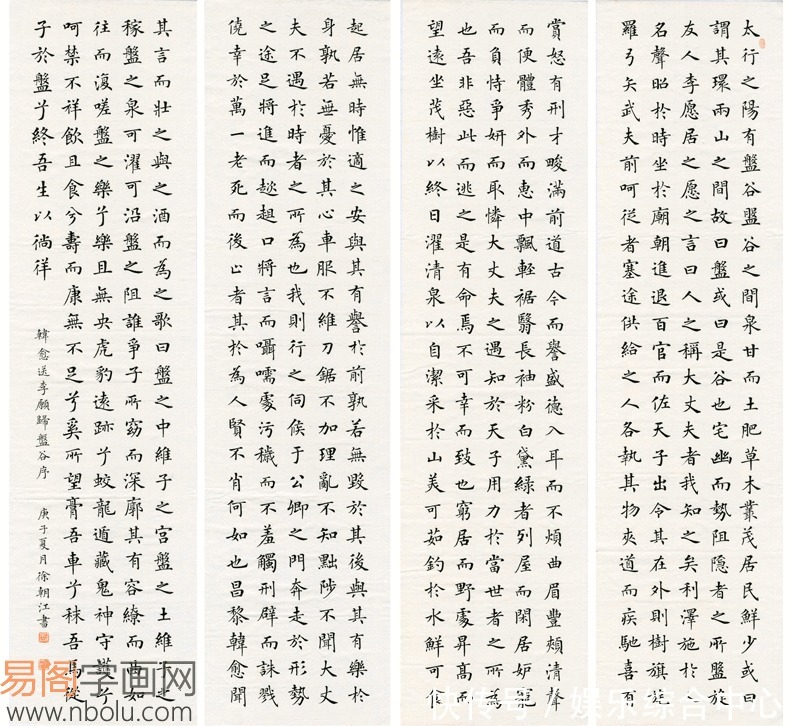 太行之陽有盤谷盤谷之間泉甘而土肥草木叢茂居民鮮少或曰
謂其環兩山之間故曰盤或曰是谷也宅幽而勢阻隐者之所盤旋
友人李愿居之愿之言曰人之稱大丈夫者我知之矣利澤施於
名聲昭於時坐於廟朝進退百官而佐天子出令其在外則樹旗
羅弓矢武夫前呵從者塞途供給之人各執其物夾道而疾馳喜有
賞怒有刑才畯滿前道古今而譽盛德入耳而不煩曲眉豐頰清聲
而便體秀外而惠中飄輕裾翳長袖粉白黛綠者列屋而閑居妒寵
而負恃爭妍而取憐大丈夫之遇知於天子用力於當世者之所為
也吾非惡此而逃之是有命焉不可幸而致也窮居而野處昇高而
望遠坐茂樹以終日濯清泉以自潔采於山美可茹釣於水鮮可
起居無時惟適之安與其有譽於前孰若無毀於其後與其有樂於
身孰若無憂於其心車服不維刀鋸不加理亂不知黜陟不聞大丈
夫不遇於時者之所為也我則行之伺候于公卿之門奔走於形勢
之途足將進而趑趄口將言而囁嚅處污穢而不羞觸刑辟而誅戮
僥幸於萬一老死而後止者其於為人賢不肖何如也昌黎韓愈聞
其言而壯之與之酒而為之歌曰盤之中維子之宮盤之土維子之
稼盤之泉可濯可沿盤之阻誰爭子所窈而深廓其有容繚而曲如
往而復嗟盤之樂兮樂且無央虎豹遠跡兮蛟龍遁藏鬼神守護兮
呵禁不祥飲且食兮壽而康無不足兮奚所望膏吾車兮秣吾馬從
子於盤兮終吾生以徜徉
韓愈送李願歸盤谷序 庚子夏月徐朝江書
易阁字画网
www.nbolu.com
快传号/娱乐综合中心